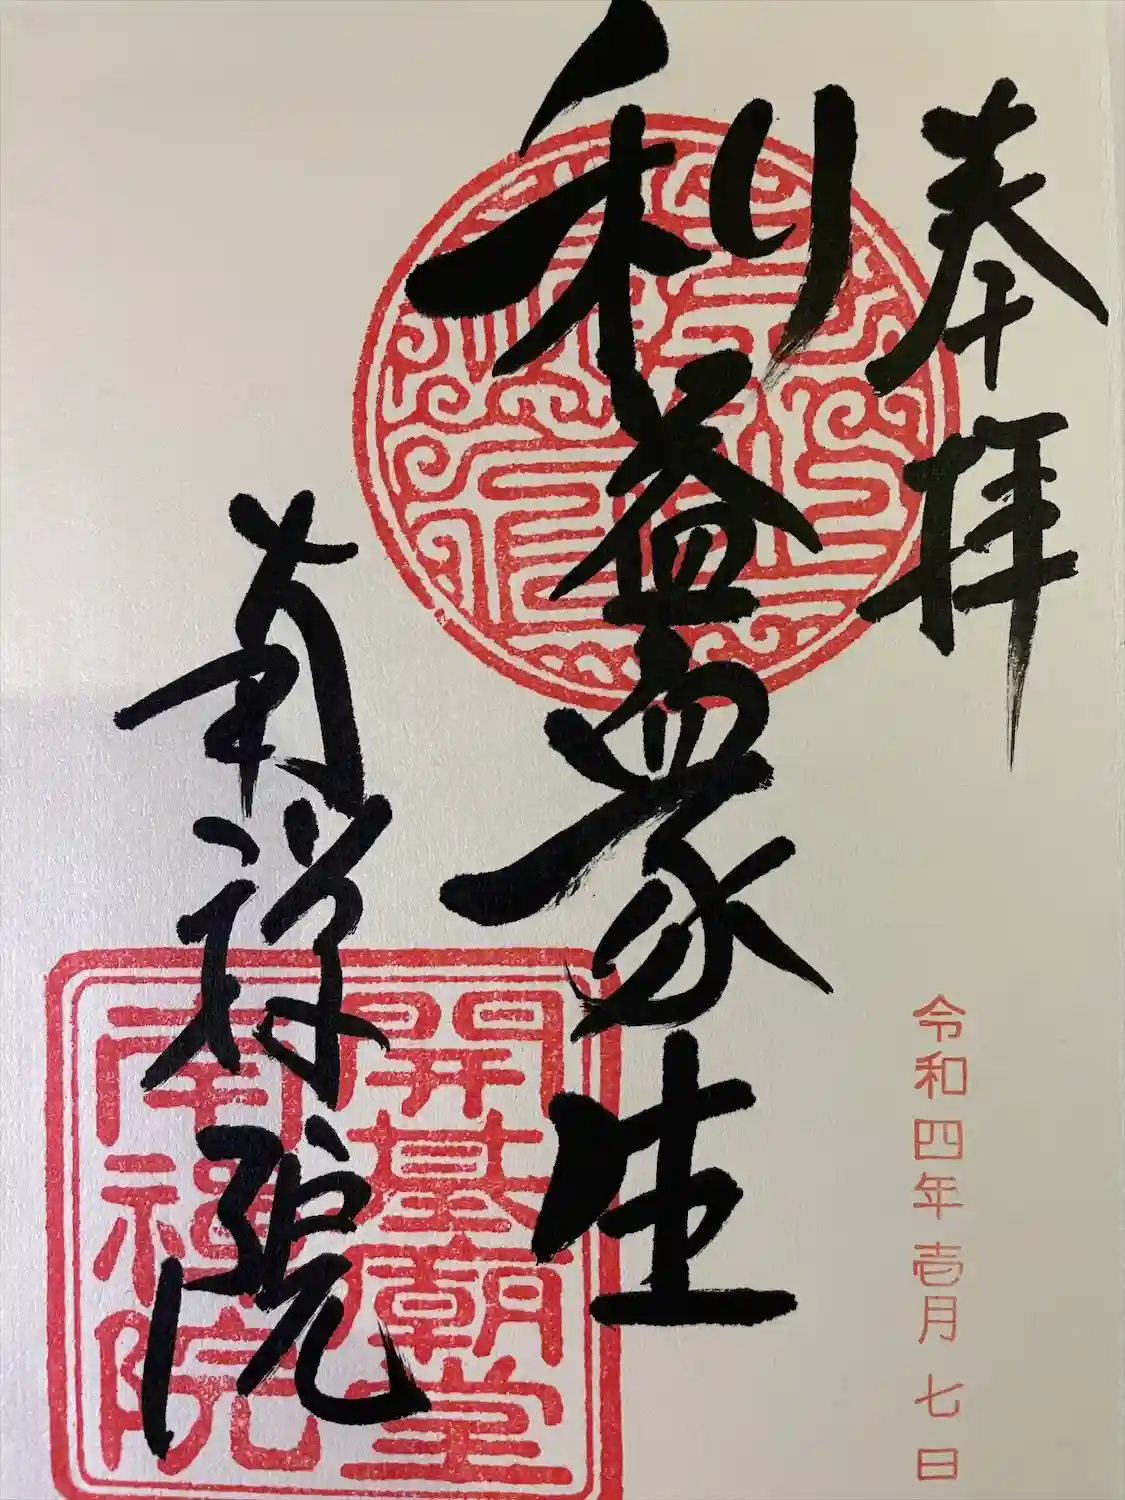 奉拝
利益衆生
南禅院
令和四年壱月七日
開基廟堂
南禅院